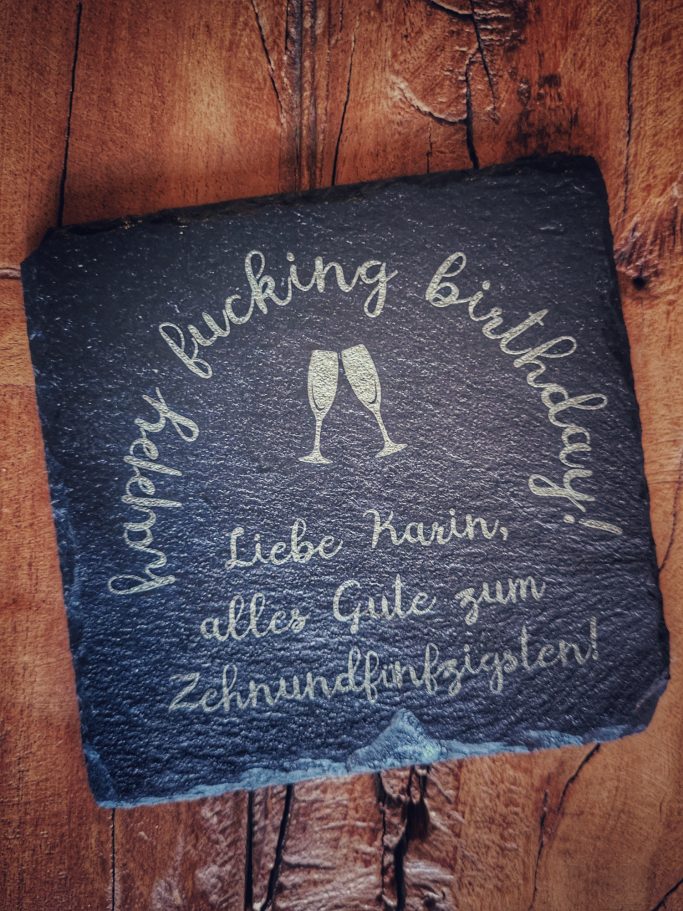 happy fucking birthday!
Liebe Karin,
alles Gute zum
Zehnundfünfzigsten!